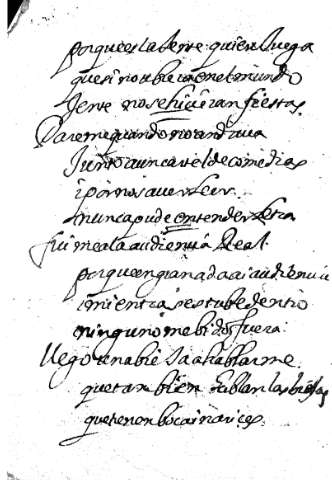 porque es la Jente quien Juega
que si no ubiera en el mundo
Jente no se hicieran fiestas.
Pareme quando no andaua
Junto a un cartel de comedias
i por no sauer leer
nunca pude entender letra
fuime a la audiencia Real.
porque en granada ai audiencia
i mientras estube dentro
ninguno me bido fuera.
llego una bieja a hablarme
que tambien hablan las biejas
que tienen boca i narices.